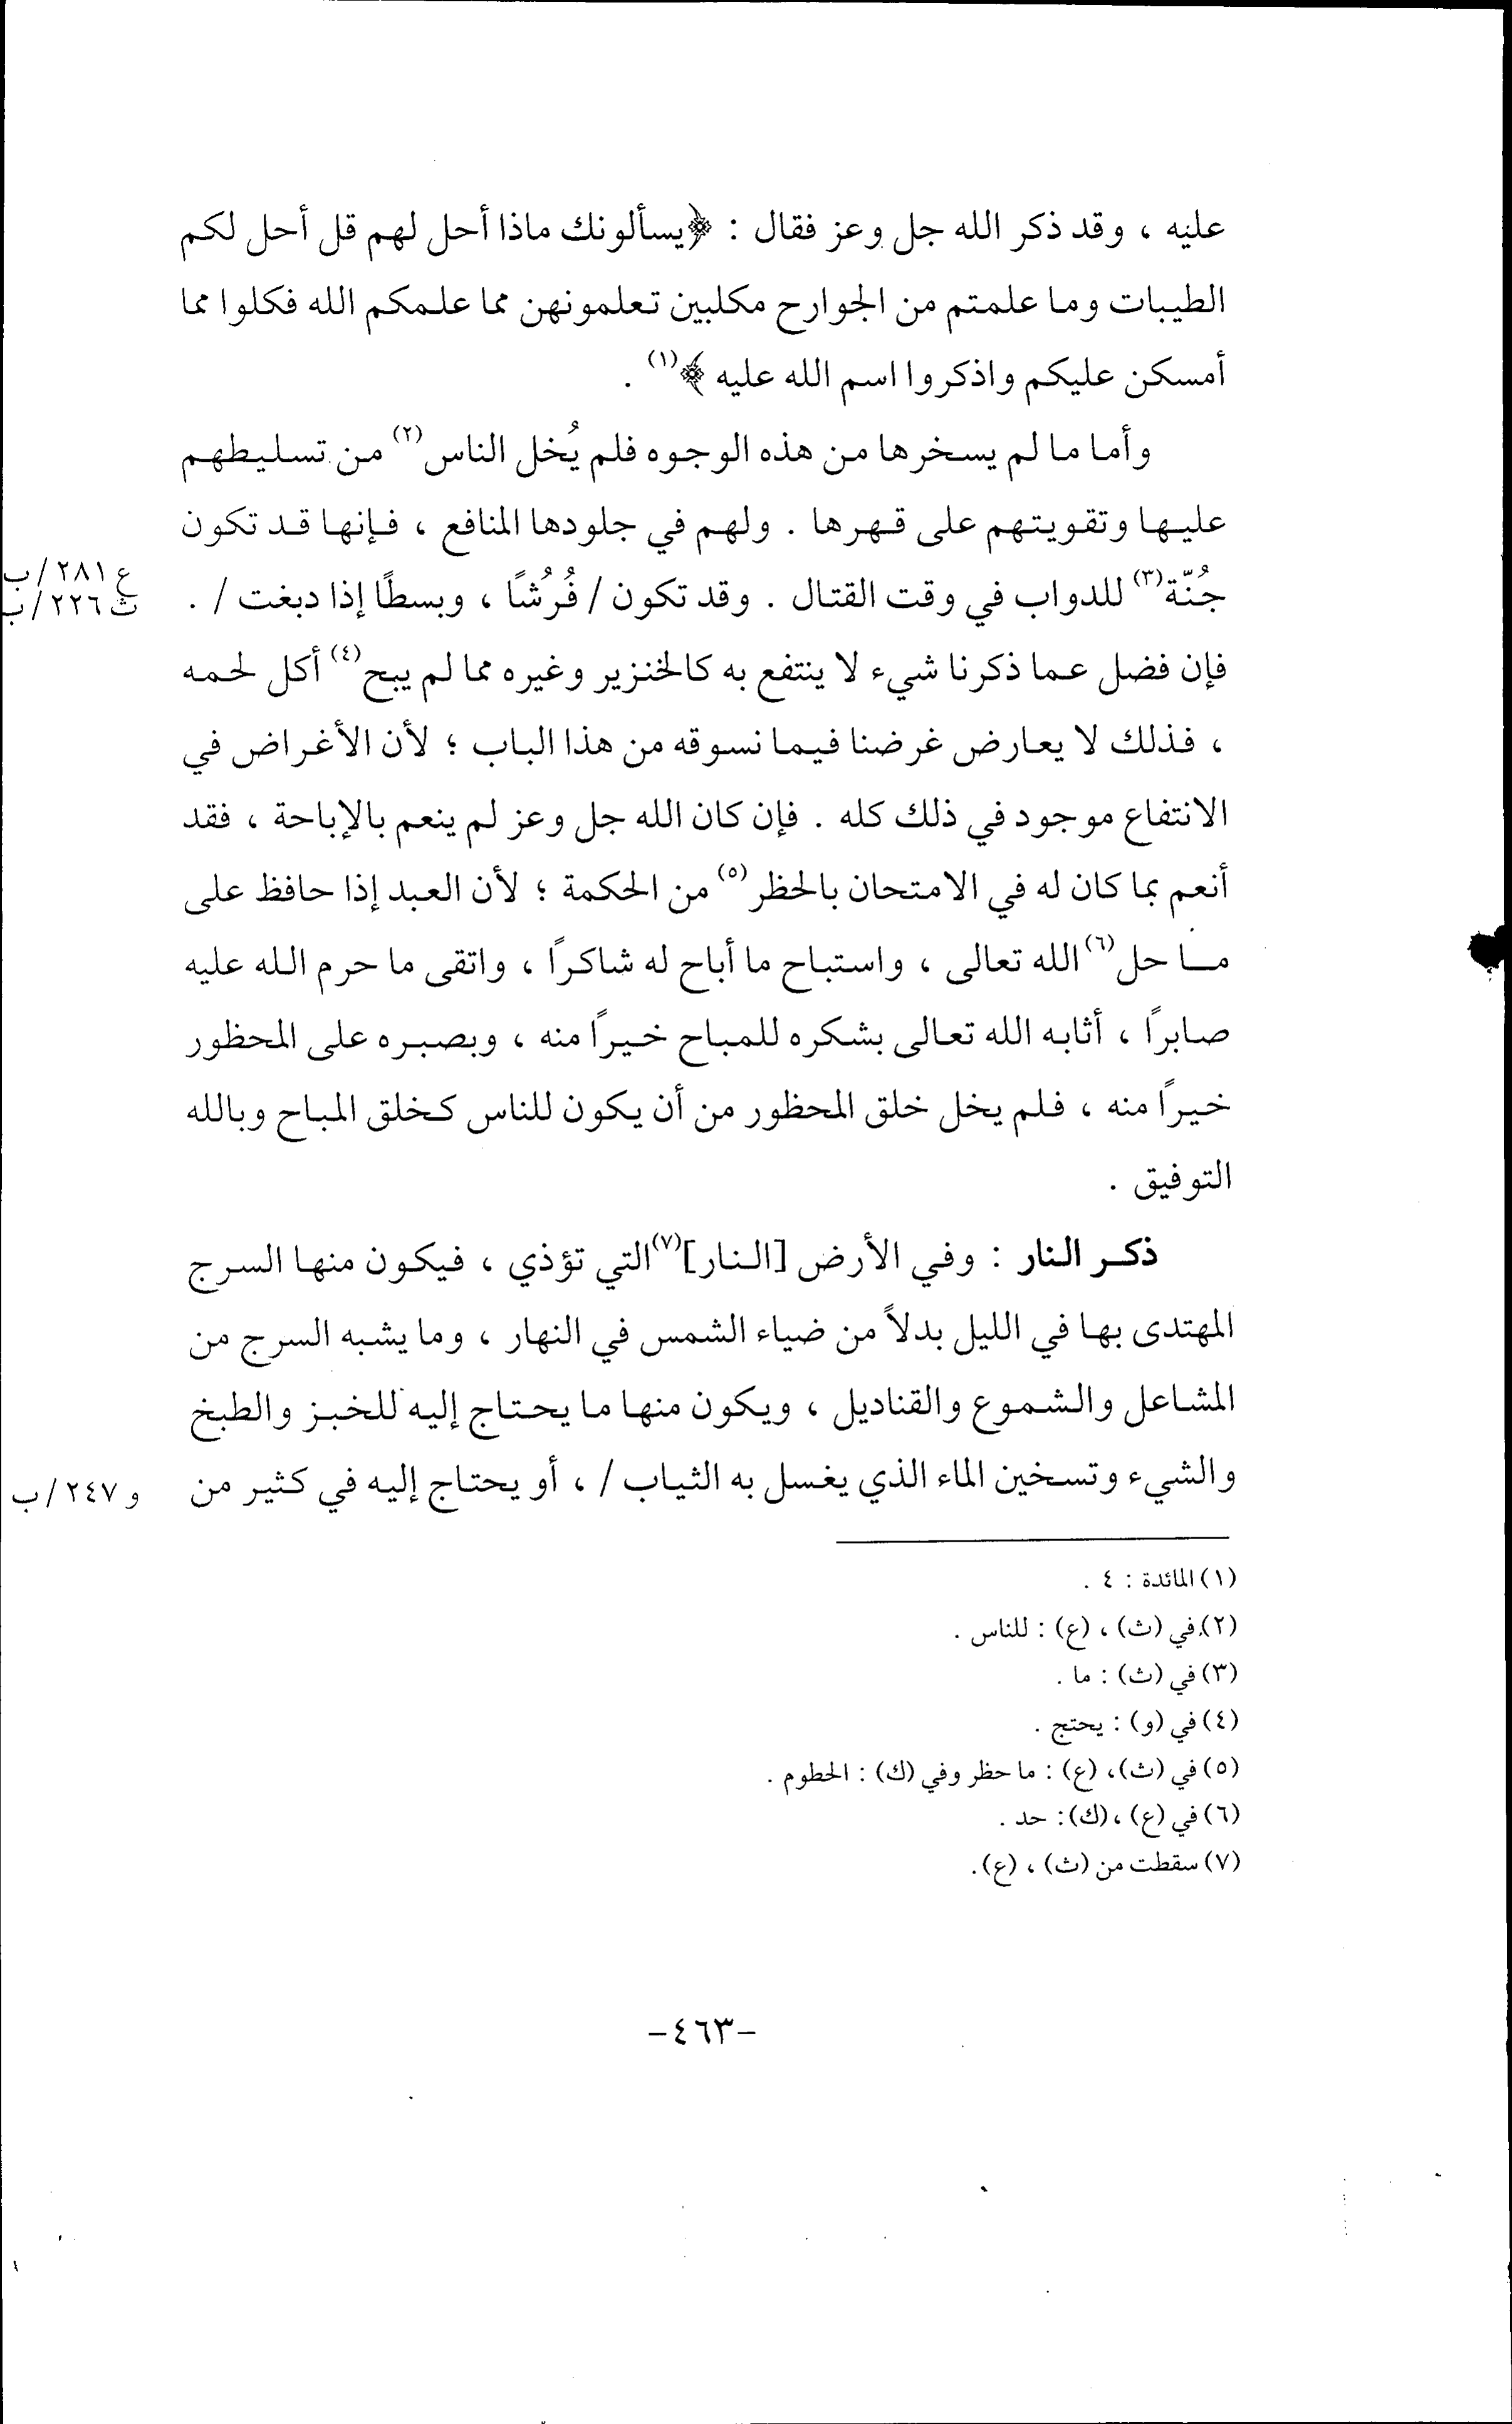 عليه ، وقد ذكر الله جل وعز فقال : ﴿يسألونك ماذا أحل لهم قل أحل لكم
الطيبات وما علمتم من الجوارح مكلبين تعلمونهن مما علمكم الله فكلوا مما
أمسكن عليكم واذكروا اسم الله عليه ﴾(١) .
وأما ما لم يسخرها من هذه الوجوه فلم يُخل الناس(٢) من تسليطهم
عليها وتقويتهم على قهرها . ولهم في جلودها المنافع ، فإنها قد تكون
ع ٢٨١/ب
جُنّة(٣) للدواب في وقت القتال . وقد تكون / فُرُشًا ، وبسطًا إذا دبغت / .
ث ٢٢٦/ب
فإن فضل عما ذكرنا شيء لا ينتفع به كالخنزير وغيره مما لم يبح(٤) أكل لحمه
، فذلك لا يعارض غرضنا فيما نسوقه من هذا الباب ؛ لأن الأغراض في
الانتفاع موجود في ذلك كله . فإن كان الله جل وعز لم ينعم بالإباحة ، فقد
أنعم بما كان له في الامتحان بالحظر(٥) من الحكمة ؛ لأن العبد إذا حافظ على
ما حل(٦) الله تعالى ، واستباح ما أباح له شاكرًا ، واتقى ما حرم الله عليه
صابرًا ، أثابه الله تعالى بشكره للمباح خيرًا منه ، وبصبره على المحظور
خيرًا منه ، فلم يخل خلق المحظور من أن يكون للناس كخلق المباح وبالله
التوفيق .
ذكر النار : وفي الأرض [النار](٧) التي تؤذي ، فيكون منها السرج
المهتدى بها في الليل بدلاً من ضياء الشمس في النهار ، وما يشبه السرج من
المشاعل والشموع والقناديل ، ويكون منها ما يحتاج إليه للخبز والطبخ
والشيء وتسخين الماء الذي يغسل به الثياب / ، أو يحتاج إليه في كثير من
و ٢٤٧/ب
(١) المائدة : ٤ .
(٢) في (ث) ، (ع) : للناس .
(٣) في (ث) : ما .
(٤) في (و) : يحتج .
(٥) في (ث)، (ع) : ما حظر وفي (ك) : الحطوم .
(٦) في (ع) ، (ك): حد .
(٧) سقطت من (ث) ، (ع).
-٤٦٣-